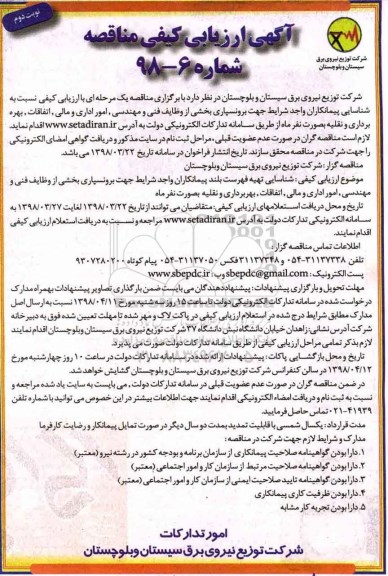 نوبت دوم
آگهی ارزیابی کیفی مناقصه
شماره ۶-۹۸
شرکت توزیع نیروی برق
سیستان وبلوچستان
شرکت توزیع نیروی برق سیستان و بلوچستان در نظر دارد با برگزاری مناقصه یک مرحله ای با ارزیابی کیفی نسبت به
شناسایی پیمانکاران واجد شرایط جهت برونسپاری بخشی از وظایف فنی و مهندسی ، امور اداری و مالی ، اتفاقات ، بهره
برداری و نقلیه بصورت نفر ماه از طریق سامانه تدارکات الکترونیکی دولت به آدرس www.setadiran.ir اقدام نماید.
لازم است مناقصه گران در صورت عدم عضویت قبلی ، مراحل ثبت نام در سایت مذکور و دریافت گواهی امضای الکترونیکی
را جهت شرکت در مناقصه محقق سازند. تاریخ انتشار فراخوان در سامانه تاریخ ۱۳۹۸/۰۳/۲۲ می باشد.
مناقصه گزار: شرکت توزیع نیروی برق سیستان وبلوچستان
موضوع ارزیابی کیفی : شناسایی تهیه فهرست بلند پیمانکاران واجد شرایط جهت برونسپاری بخشی از وظایف فنی و
مهندسی ، امور اداری و مالی ، اتفاقات ، بهره برداری و نقلیه بصورت نفر ماه
تاریخ و محل دریافت استعلامهای ارزیابی کیفی : متقاضیان می توانند از تاریخ ۱۳۹۸/۰۳/۲۲ لغایت ۱۳۹۸/۰۳/۲۷ به
سامانه الکترونیکی تدارکات دولت به آدرس www.setadiran.ir مراجعه و نسبت به دریافت استعلام ارزیابی کیفی
اقدام نمایند.
اطلاعات تماس مناقصه گزار :
تلفن ۳۱۱۳۷۳۳۸-۰۵۴ و ۳۱۱۳۷۳۴۸ فکس ۳۱۱۳۷۰۵۰-۰۵۴ پیام کوتاه ۹۳۰۷۲۸۰۲۰۰
پست الکترونیک : sbepdc@gmail.com وب : www.sbepdc.ir
مهلت تحویل و بارگزاری پیشنهادات : پیشنهاددهندگان می بایست ضمن بارگذاری تصاویر پیشنهادات بهمراه مدارک
درخواست شده در سامانه تدارکات الکترونیکی دولت تا ساعت ۱۵ روز سه شنبه مورخ ۱۳۹۸/۰۴/۱۱ نسبت به ارسال اصل
مدارک مطابق شرایط درج شده در استعلام ارزیابی کیفی در پاکت لاک و مهر شده تا مهلت تعیین شده فوق به دبیرخانه
شرکت آدرس نشانی: زاهدان خیابان دانشگاه نبش دانشگاه ۳۷ شرکت توزیع نیروی برق سیستان وبلوچستان اقدام نمایند
لازم بذکر تمامی مراحل ارزیابی کیفی از طریق سامانه تدارکات دولت صورت می پذیرد.
تاریخ و محل بازگشایی پاکات : پیشنهادات ارائه شده در سامانه تدارکات دولت در ساعت ۱۰ روز چهارشنبه مورخ
۱۳۹۸/۰۴/۱۲ در سالن کنفرانس شرکت توزیع نیروی برق سیستان و بلوچستان گشایش خواهد شد.
در ضمن مناقصه گران در صورت عدم عضویت قبلی در سامانه تدارکات دولت ، می بایست به سایت یاد شده مراجعه و
نسبت به ثبت نام و دریافت امضاء الکترونیکی اقدام نمایند جهت اطلاعات بیشتر در این خصوص می توانید با شماره تلفن
۴۱۹۳۹-۰۲۱ تماس حاصل فرمایید.
مدت قرارداد : یکسال شمسی با قابلیت تمدید بمدت دو سال دیگر در صورت تمایل پیمانکار و رضایت کارفرما
مدارک و شرایط لازم جهت شرکت در مناقصه :
۱. دارا بودن گواهینامه صلاحیت پیمانکاری از سازمان برنامه و بودجه کشور در رشته نیرو (معتبر)
۲. دارا بودن گواهینامه صلاحیت مرتبط از سازمان کار و امور اجتماعی (معتبر)
۳. دارا بودن گواهینامه تایید صلاحیت ایمنی از سازمان کار و امور اجتماعی (معتبر)
۴. دارا بودن ظرفیت کاری پیمانکاری
۵. دارا بودن تجربه کار مشابه
امور تدارکات
شرکت توزیع نیروی برق سیستان وبلوچستان